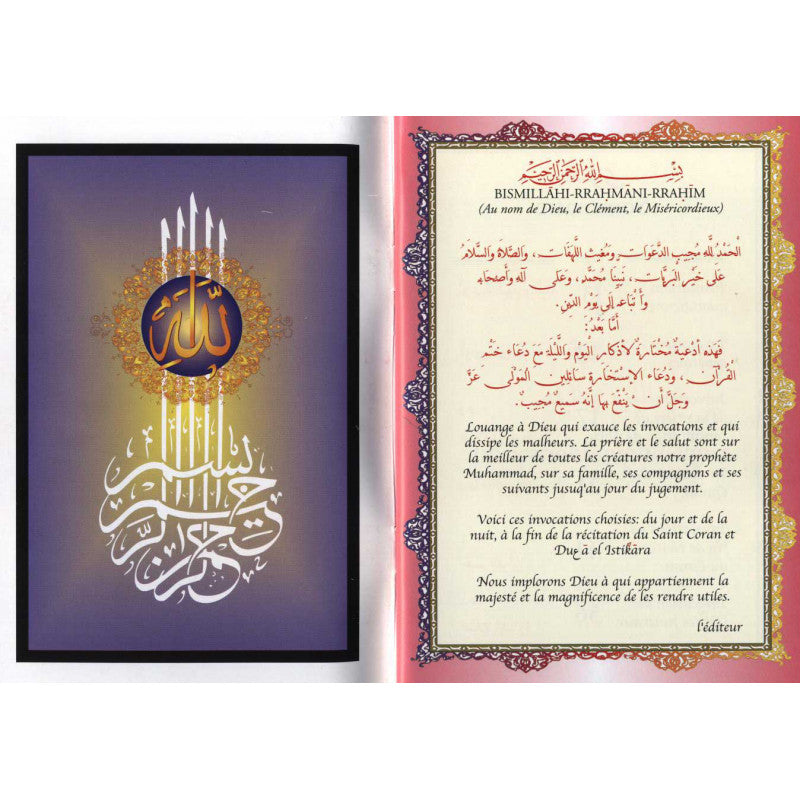 بسم الله الرحمن الرحيم
بِسْمِ اللهِ الرَّحْمٰنِ الرَّحِيْمِ
BISMILLĀHI-RRAḤMĀNI-RRAḤĪM
(Au nom de Dieu, le Clément, le Miséricordieux)
الْحَمْدُ للهِ مُجِيبِ الدَّعَوَاتِ وَمُغِيثِ اللَّهَفَاتِ، وَالصَّلَاةُ وَالسَّلَامُ
عَلَى خَيْرِ الْبَرِيَّاتِ، نَبِيِّنَا مُحَمَّدٍ، وَعَلَى آلِهِ وَأَصْحَابِهِ
وَأَتْبَاعِهِ إِلَى يَوْمِ الدِّينِ.
أَمَّا بَعْدُ:
فَهَذِهِ أَدْعِيَةٌ مُخْتَارَةٌ لِأَذْكَارِ الْيَوْمِ وَاللَّيْلَةِ مَعَ دُعَاءِ خَتْمِ
الْقُرْآنِ، وَدُعَاءِ الِاسْتِخَارَةِ سَائِلِينَ الْمَوْلَى عَزَّ
وَجَلَّ أَنْ يَنْفَعَ بِهَا إِنَّهُ سَمِيعٌ مُجِيبٌ.
Louange à Dieu qui exauce les invocations et qui
dissipe les malheurs. La prière et le salut sont sur
la meilleur de toutes les créatures notre prophète
Muhammad, sur sa famille, ses compagnons et ses
suivants jusuq'au jour du jugement.
Voici ces invocations choisies: du jour et de la
nuit, à la fin de la récitation du Saint Coran et
Duع ā el Istikāra
Nous implorons Dieu à qui appartiennent la
majesté et la magnificence de les rendre utiles.
l'éditeur